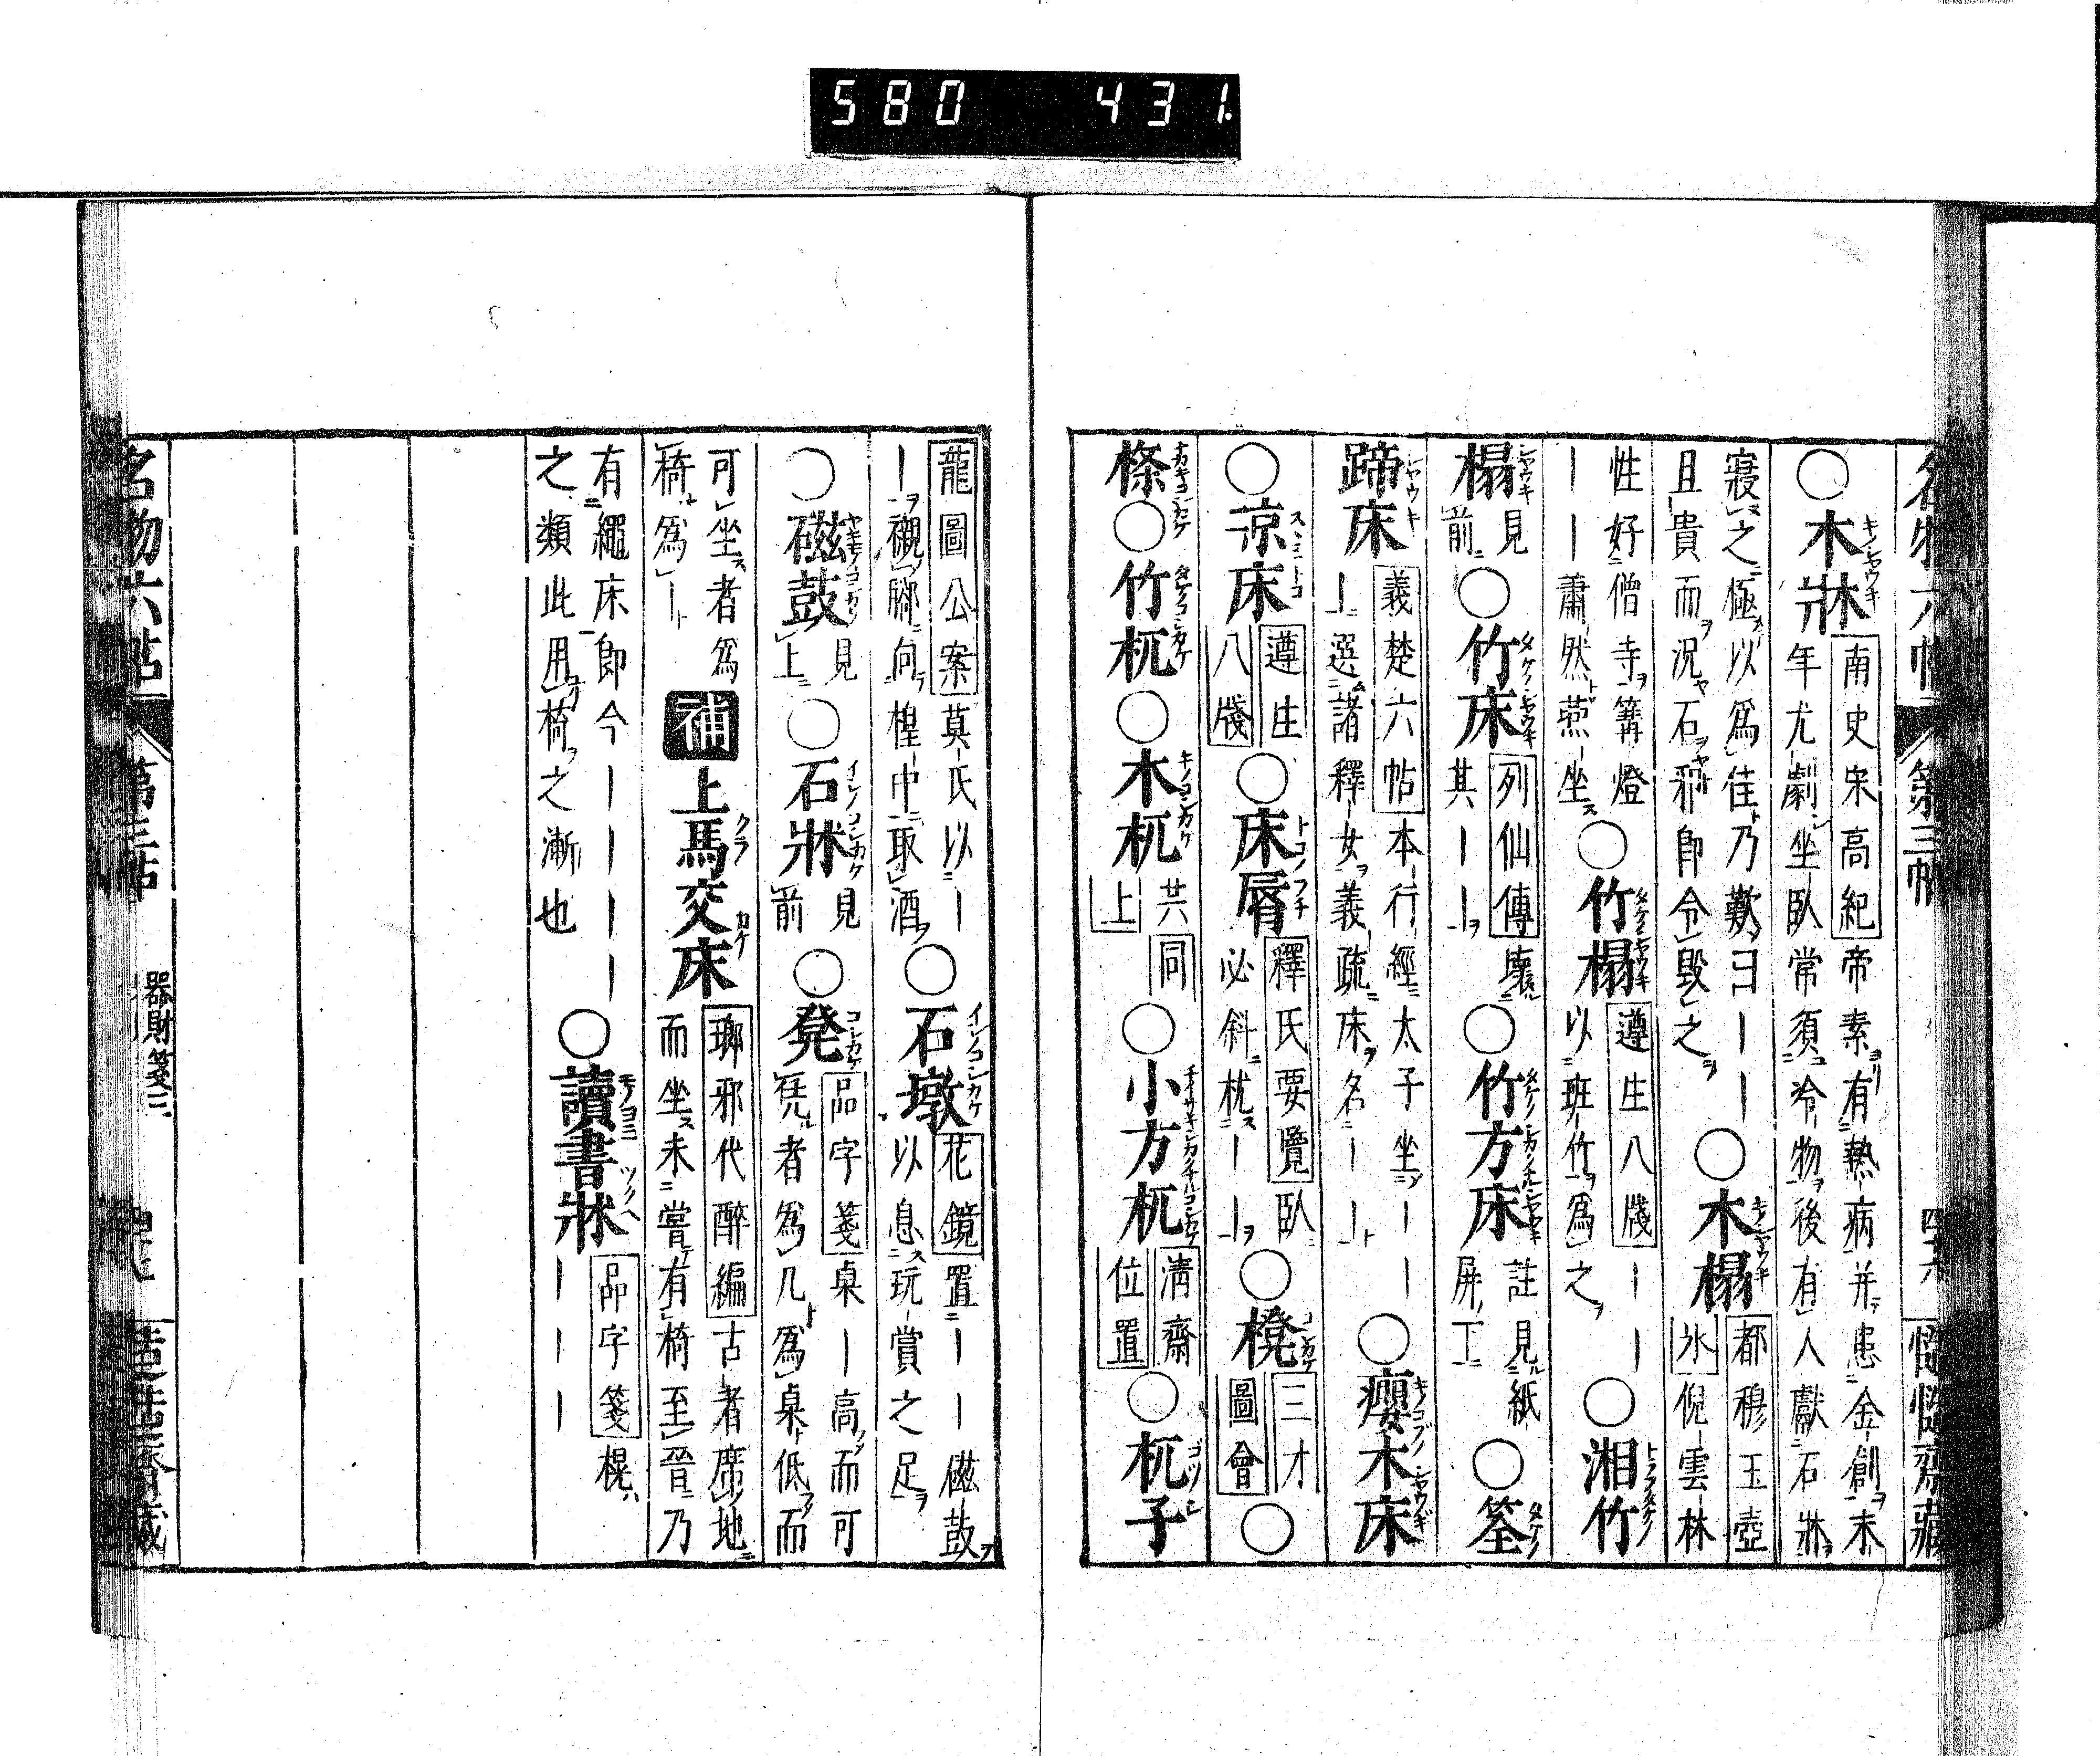 580 431.
名物六帖 第三帖 四十六
○木牀 南史宋高紀 帝素有熱病并患金創末
年尤劇坐臥常須冷物後有人獻石牀
寢之極以為佳乃歎曰――○木榻 都穆玉壺
且貴而況石邪即令毀之 氷 倪雲林
性好僧寺篝燈○竹榻 遵生八牋 ――○湘竹
――蕭然燕坐 以班竹為之
榻 見前○竹床 列仙傳 壞其――○竹方床 註見紙屏下○筌
蹄床 義楚六帖 本行經太子坐―――○癭木床
―選諸釋女義疏床名――
○凉床 遵生八牋○床脣 釋氏要覽 臥必斜枕――○櫈 三才圖會○
條○竹杌○木杌 共同上○小方杌 清齋位置○杌子
龍圖公案 莫氏以―○石墩 花鏡 置――磁鼓
―襯腳向棍中取酒 以息玩賞之足
○磁鼓 見上○石牀 見前○凳 品字箋 桌―高而可
凭者為几為桌低而
可坐者為 補 上馬交床 瑯邪代醉編 古者席地
椅為― 而坐未嘗有椅至晉乃
有繩床即今――――○讀書牀 品字箋 榥
之類此用椅之漸也 ―――
名物六帖 第三帖 器財箋三